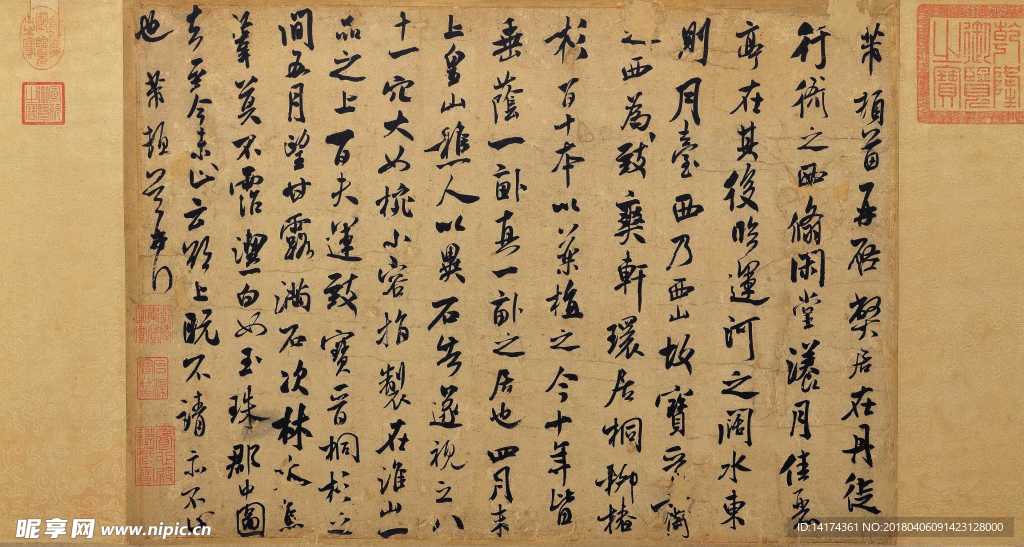 芾頓首再啓弊居在丹徒
行衙之西翛閑堂漾月佳麗
亭在其後臨運河之闊水東
則月臺西乃西山故寶晉齋
之西為致爽軒環居桐柳椿
杉百十本以藥植之今十年皆
垂蔭一畝真一畝之居也四月末
上皇山樵人以異石告遂視之八
十一穴大如椀小容指製在淮山一
品之上百夫運致寶晉桐杉之
間五月望甘露滿石次林木焦
葦莫不霑潔白如玉珠郡中圖
去至今未止云欲上既不請亦不
也芾頓首
乾隆御覽之寶
昵享网 www.nipic.cn
ID:14174361 NO:20180406091423128000